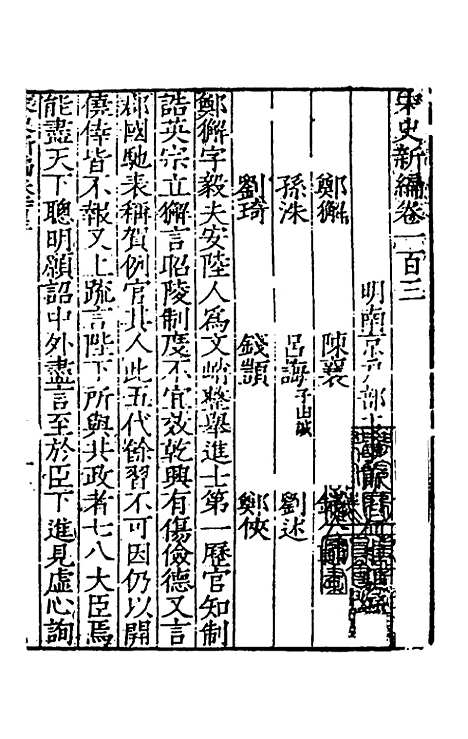 宋史新編卷一百三
明南京戶部
鄭獬　陳襄　錢
孫洙　呂誨子由誠　劉述
劉琦　錢顗　鄭俠
鄭獬字毅夫安陸人為文峭整舉進士第一歷官知制
誥英宗立獬言昭陵制度不宜效乾興有傷儉德又言
郡國馳表稱賀例官其人此五代餘習不可因仍以開
僥倖皆不報又上疏言陛下所與共政者七八大臣焉
能盡天下聰明願詔中外盡言至於臣下進見虛心詢